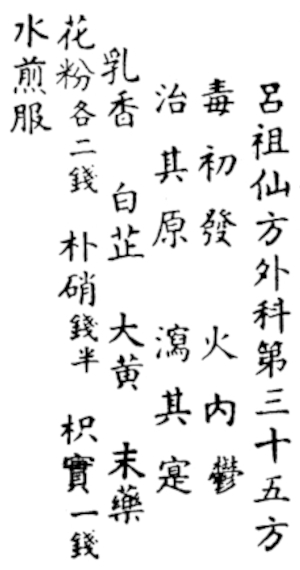 呂祖仙方外科第三十五方
毒初發 火內鬱
治其原 瀉其寔
乳香 白芷 大黄 末藥
花粉各二錢 朴硝錢半 枳實一錢
水煎服